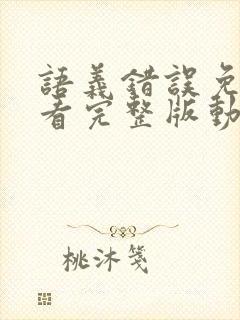 語義錯誤免
看完整版動
桃沐箋